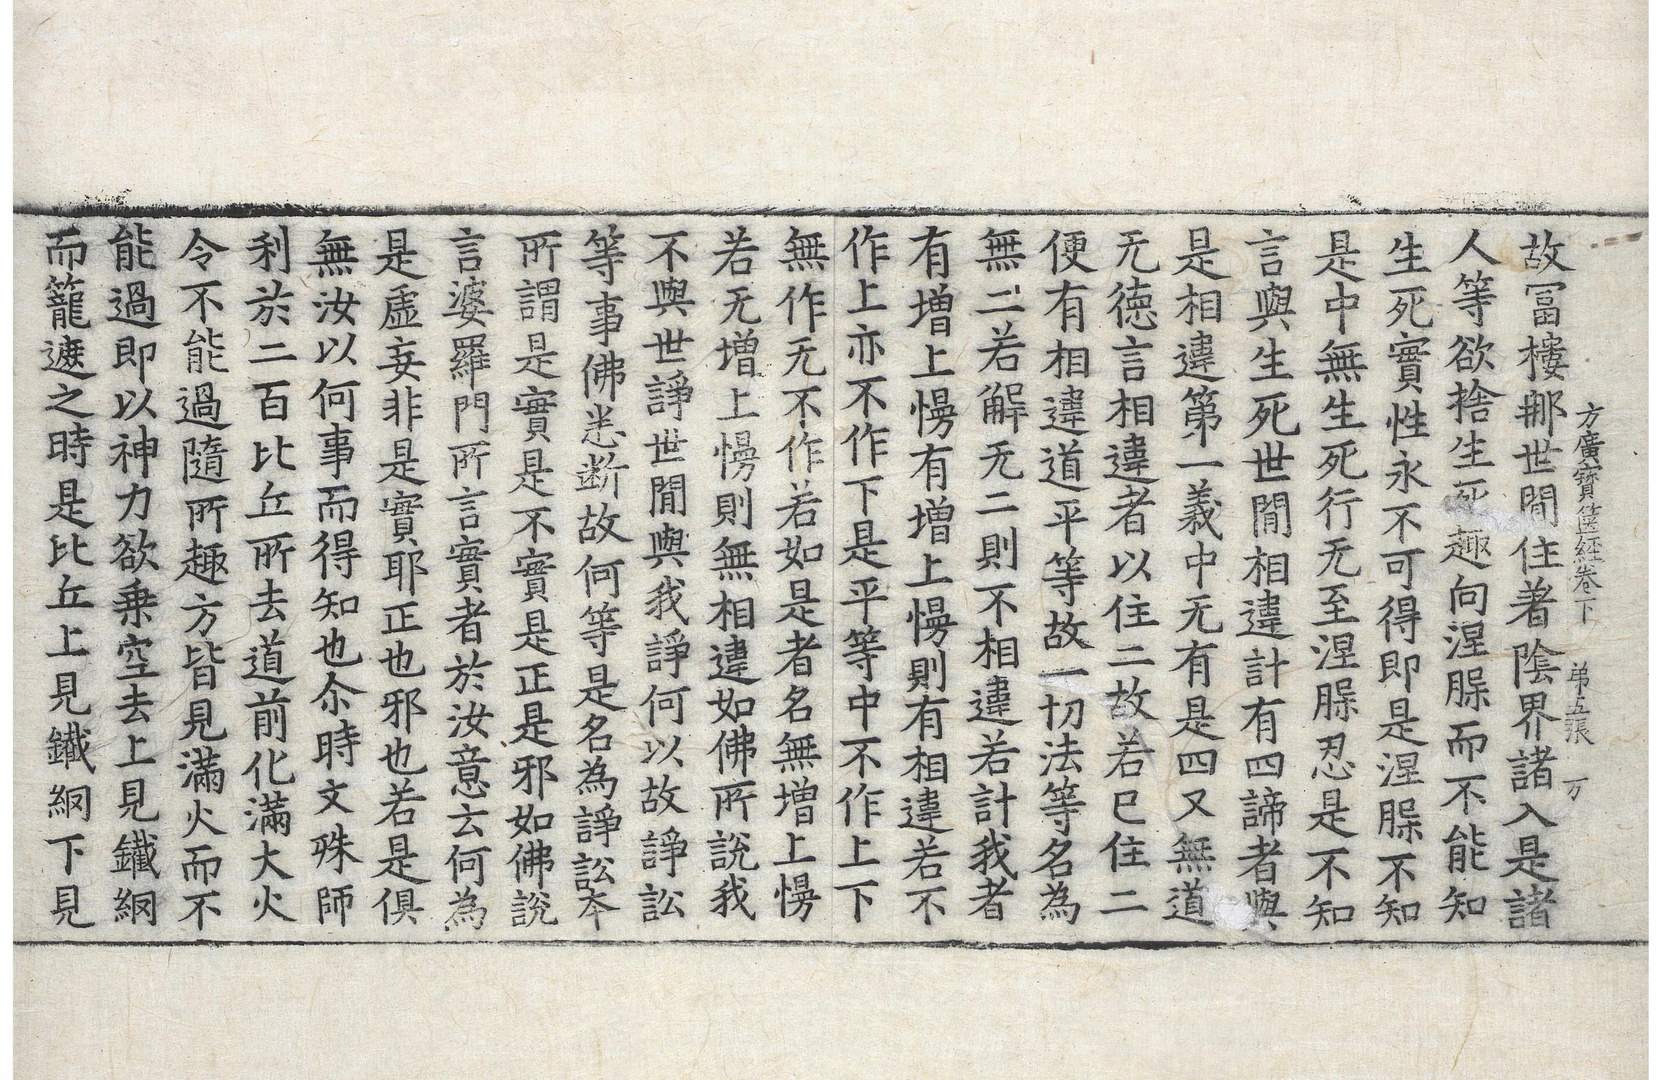 方廣寶篋經卷下 苐五張 万
故冨樓那世間住著陰界諸入是諸
人等欲捨生死趣向涅脲而不能知
生死實性永不可得即是涅脲不知
是中無生死行无至涅脲忍是不知
言與生死世間相違計有四諦者與
是相違第一義中无有是四又無道
无德言相違者以住二故若已住二
便有相違道平等故一切法等名為
無二若解无二則不相違若計我者
有增上慢有增上慢則有相違若不
作上亦不作下是平等中不作上下
無作无不作若如是者名無增上慢
若无增上慢則無相違如佛所說我
不與世諍世間與我諍何以故諍訟
等事佛悉断故何等是名為諍訟夲
所謂是實是不實是正是邪如佛說
言婆羅門所言實者於汝意云何為
是虛妄非是實耶正也邪也若是俱
無汝以何事而得知也尒時文殊師
利於二百比丘所去道前化滿大火
令不能過隨所趣方皆見滿火而不
能過即以神力欲乗空去上見鐵網
而籠遮之時是比丘上見鐵網下見